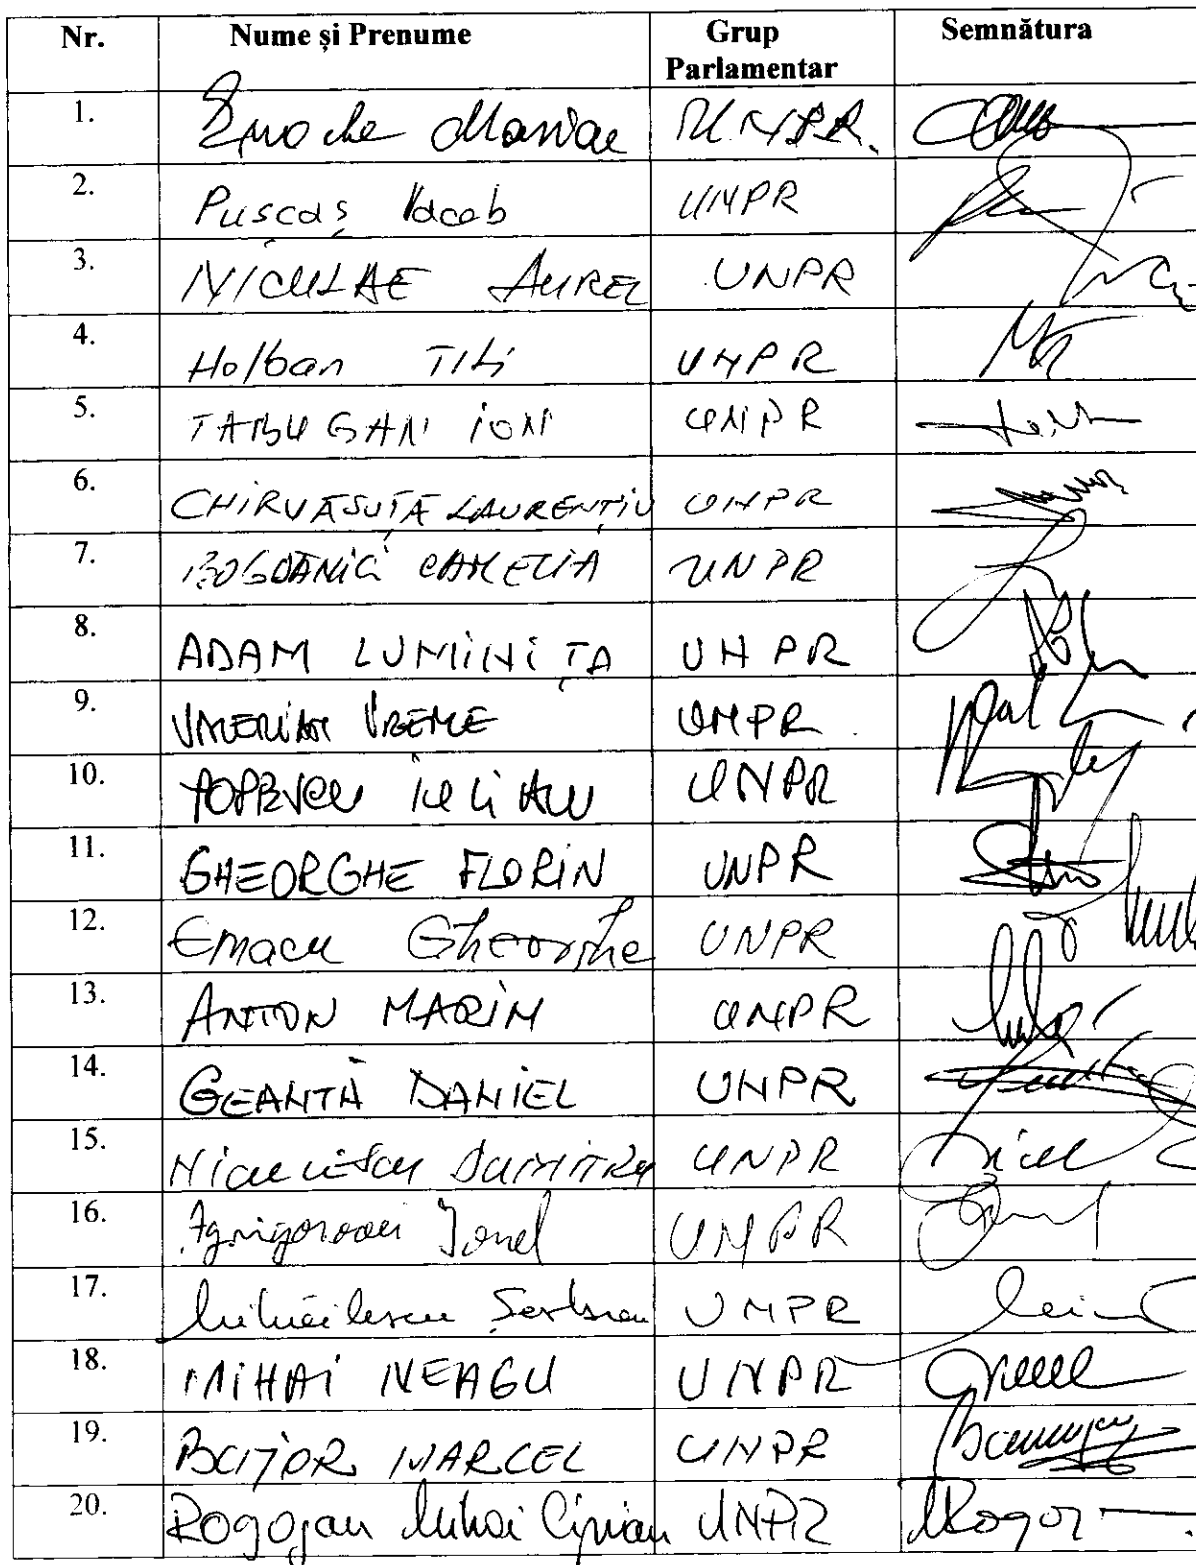 Nr. Nume și Prenume Grup Parlamentar Semnătura
1. Enache Marian U.N.P.R.
2. Pușcaș Iacob UNPR
3. NICULAE AUREL UNPR
4. Holban Titi UNPR
5. TABUGAN ION UNPR
6. CHIRVĂSUȚĂ LAURENȚIU UNPR
7. BOGDĂNICI CAMELIA UNPR
8. ADAM LUMINIȚA UNPR
9. VALERIAN VREME UNPR
10. UNPR
11. GHEORGHE FLORIN UNPR
12. Emacu Gheorghe UNPR
13. ANTON MARIN UNPR
14. GEANTĂ DANIEL UNPR
15. Niculescu DUMITRU UNPR
16. Agrigoroaei Ionel UNPR
17. Mihăilescu Șerban UNPR
18. MIHAI NEAGU UNPR
19. BOȚOR MARCEL UNPR
20. Rogojan Mihai Ciprian UNPR